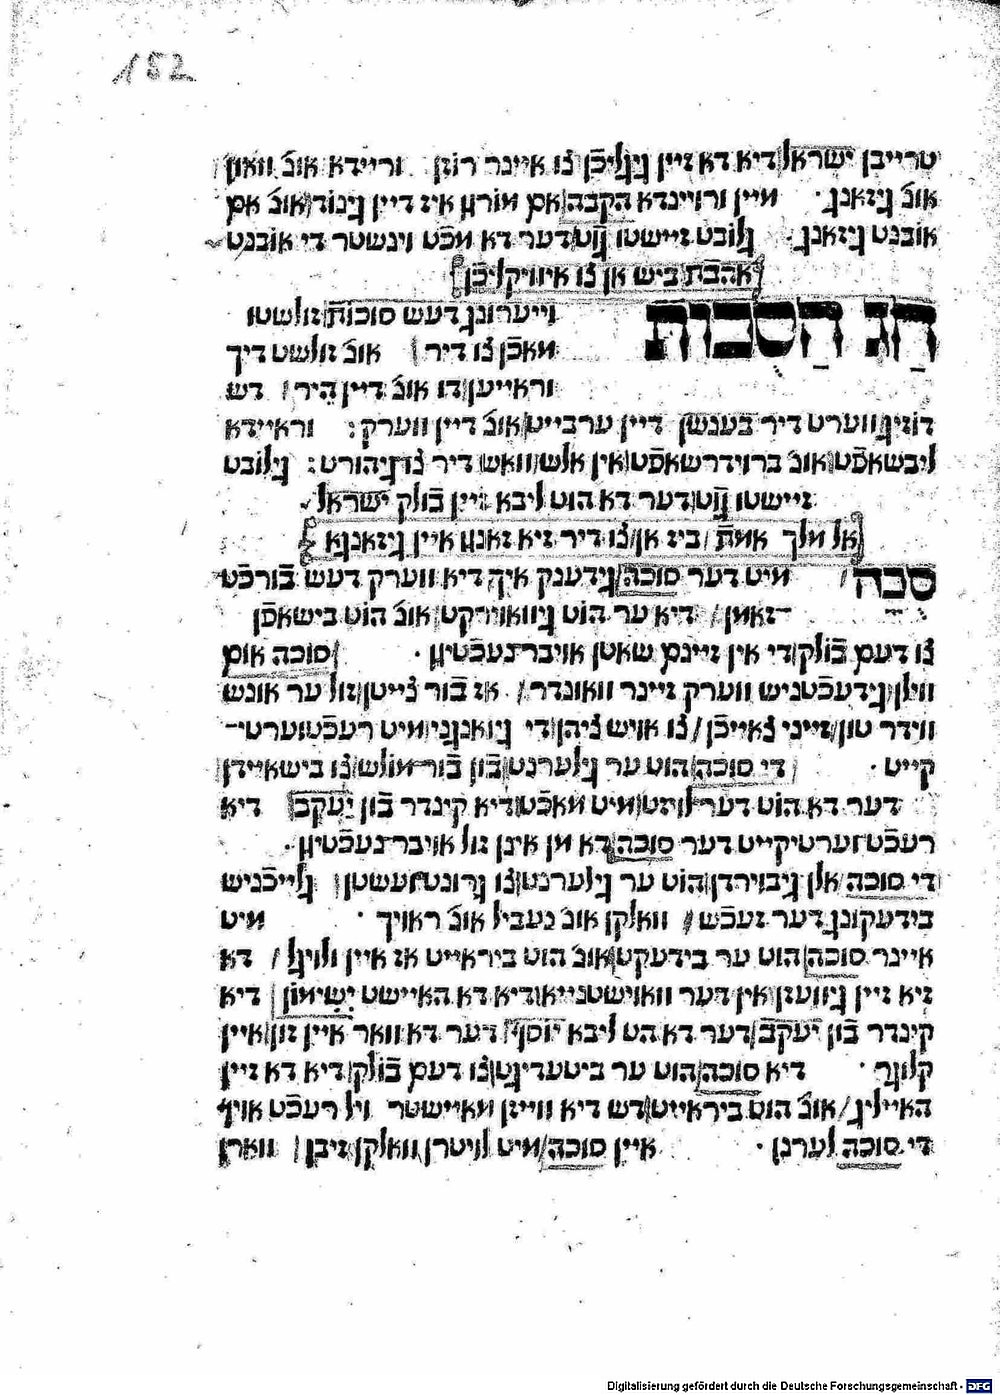 152
טרייבן ישראל דיא דא זיין גיגליכן צו איינר רוזן ורייދא אונ וואון
אונ גיזאנג · מיין ורויינדא הקבה אם מורגן איז דיין גינוד אונ אם
אובנט גיזאנג · גלובט זיישטו גוט דער דא מכט וינשטר די אובנט
אהבת ביש אן צו איוויקליכן
חג הסכות
וייערונג דעש סוכות זולשטו
מאכן צו דיר אונ זולשט דיך
וראייען דו אונ דיין היר דש
דוזיג ווערט דיר בענשן דיין ערבייט אונ דיין ווערק : וראיידא
ליבשאפט אונ ברוידרשאפט אין אלש וואש דיר צו גיהורט : גילובט
זיישטו גוט דער דא הוט ליבא זיין בולק ישראל
אל מלך אמת ביז אן צו דיר זיא זאגן איין גיזאנגא
סכה מיט דער סוכה גידענק איך דיא ווערק דעש בורכט
זאמן דיא ער הוט גיוואוירקט אונ הוט בישאפן
צו דעם בולק די אין זיינם שאטן אויברנעכטיגן · סוכה אום
ווילן גידעכטניש ווערק זיינר וואונדר אז בור צייטן זול ער אונש
ווידר טון זייני צאייכן צו אויש ציהן די גיואנגני מיט רעכטוערטי־
קייט · די סוכה הוט ער גילערנט בון בור מולש צו בישאיידן
דער דא הוט דער לויזט מיט מאכט דיא קינדר בון יעקב דיא
רעכטוערטיקייט דער סוכה דא מן אינן זול אויברנעכטיגן ·
די סוכה אלן גיבוירדן הוט ער גילערנט צו גרונטועשטן גלייכניש
בידעקונג דער זעכש וואלקן אונ נעביל אונ ראויך · מיט
איינר סוכה הוט ער בידעקט אונ הוט ביראייט אז איין ולויגל דא
זיא זיין גיוועזן אין דער וואוישטנייא דיא דא האיישט ישימון דיא
קינדר בון יעקב דער דא הט ליבא יוסף דער דא וואר איין זון איין
קלוגר · דיא סוכה הוט ער ביטעדיגט צו דעם בולק דיא דא זיין
האייליג אונ הוט ביראייט דש דיא ווייזן מאיישטר ויל רעכט אויף
די סוכה לערנן · איין סוכה מיט לויטרן וואלקן זיבן ווארן
Digitalisierung gefördert durch die Deutsche Forschungsgemeinschaft - DFG